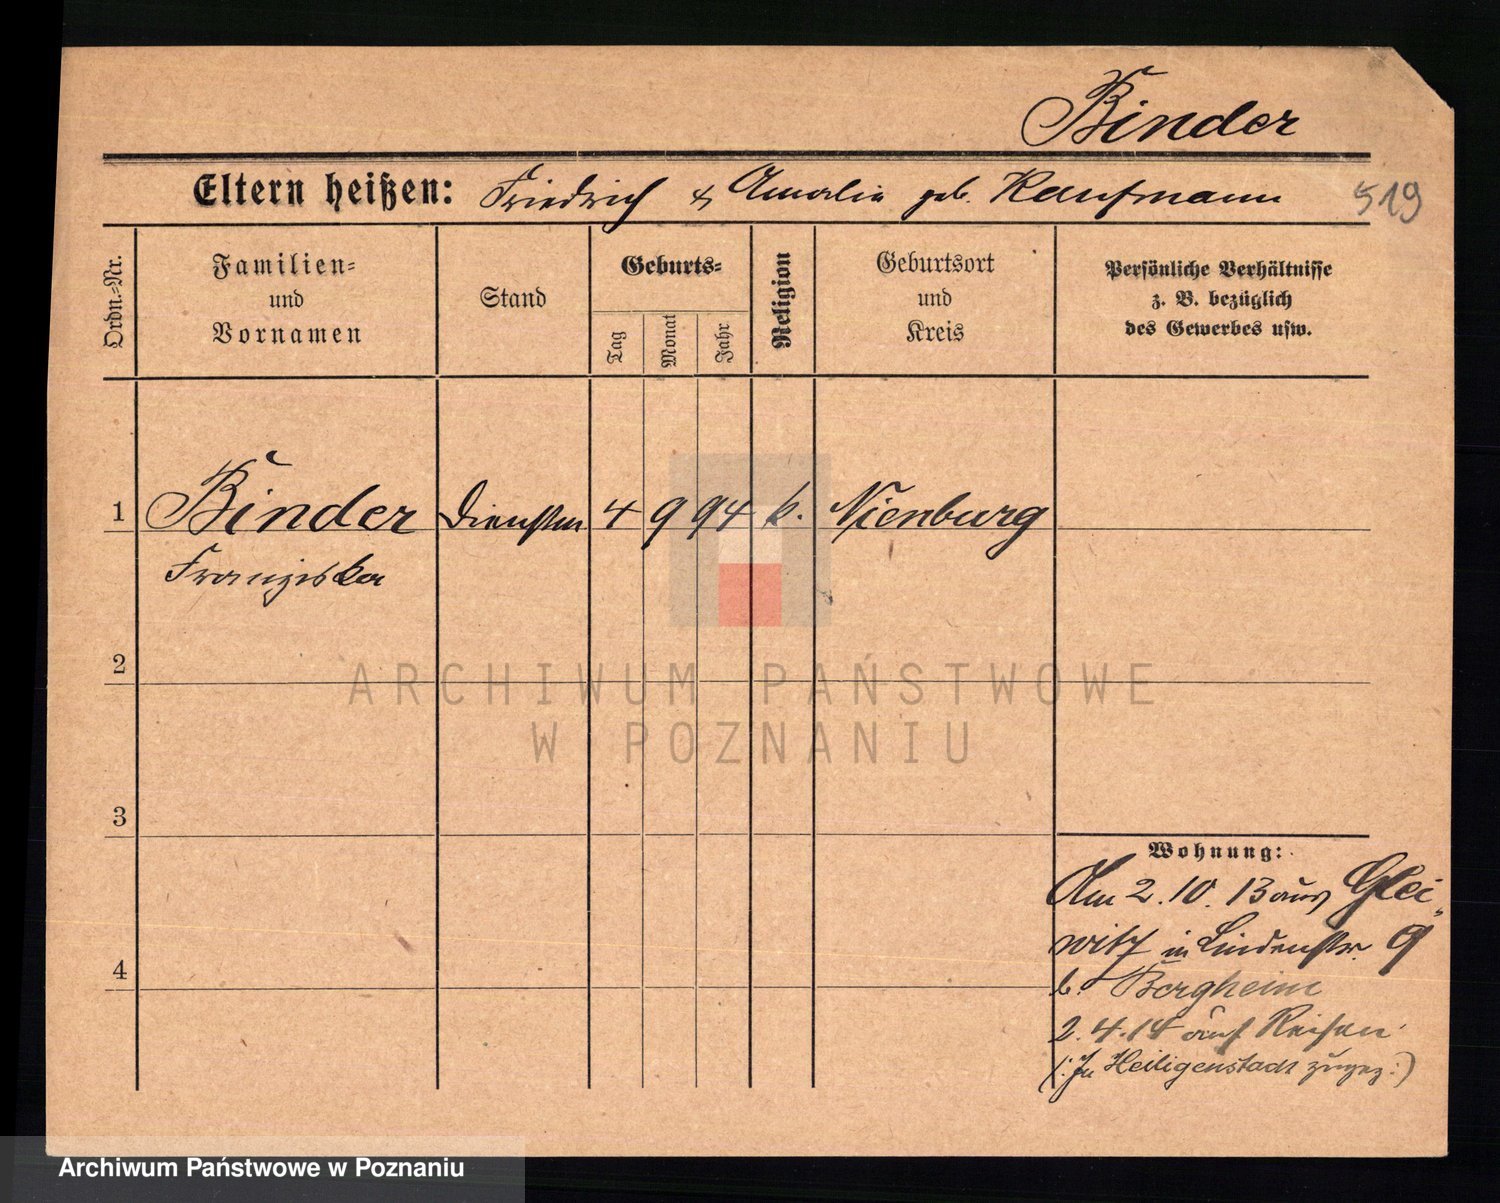 Binder
Eltern heißen: Friedrich & Amalie geb. Kaufmann 519
Ordn.=Nr.
Familien=
und
Vornamen
Stand
Geburts=
Tag
Monat
Jahr
Religion
Geburtsort
und
Kreis
Persönliche Verhältnisse
z. B. bezüglich
des Gewerbes usw.
1 Binder 4 9 94 k. Nienburg
Franziska
2
3
4
Wohnung:
Am 2.10.13 aus Glei-
witz in Lindenstr. 9
b. Bergheim
2.4.14 auf Reisen
(: In Heiligenstadt zugez. :)
ARCHIWUM PAŃSTWOWE
W POZNANIU
Archiwum Państwowe w Poznaniu